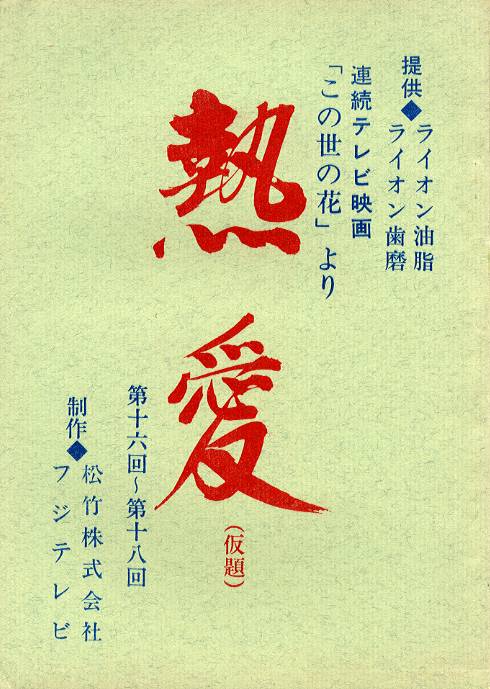 提供◆ライオン油脂
ライオン歯磨
連続テレビ映画
「この世の花」より
熱愛
(仮題)
第十六回～第十八回
制作◆松竹株式会社
フジテレビ